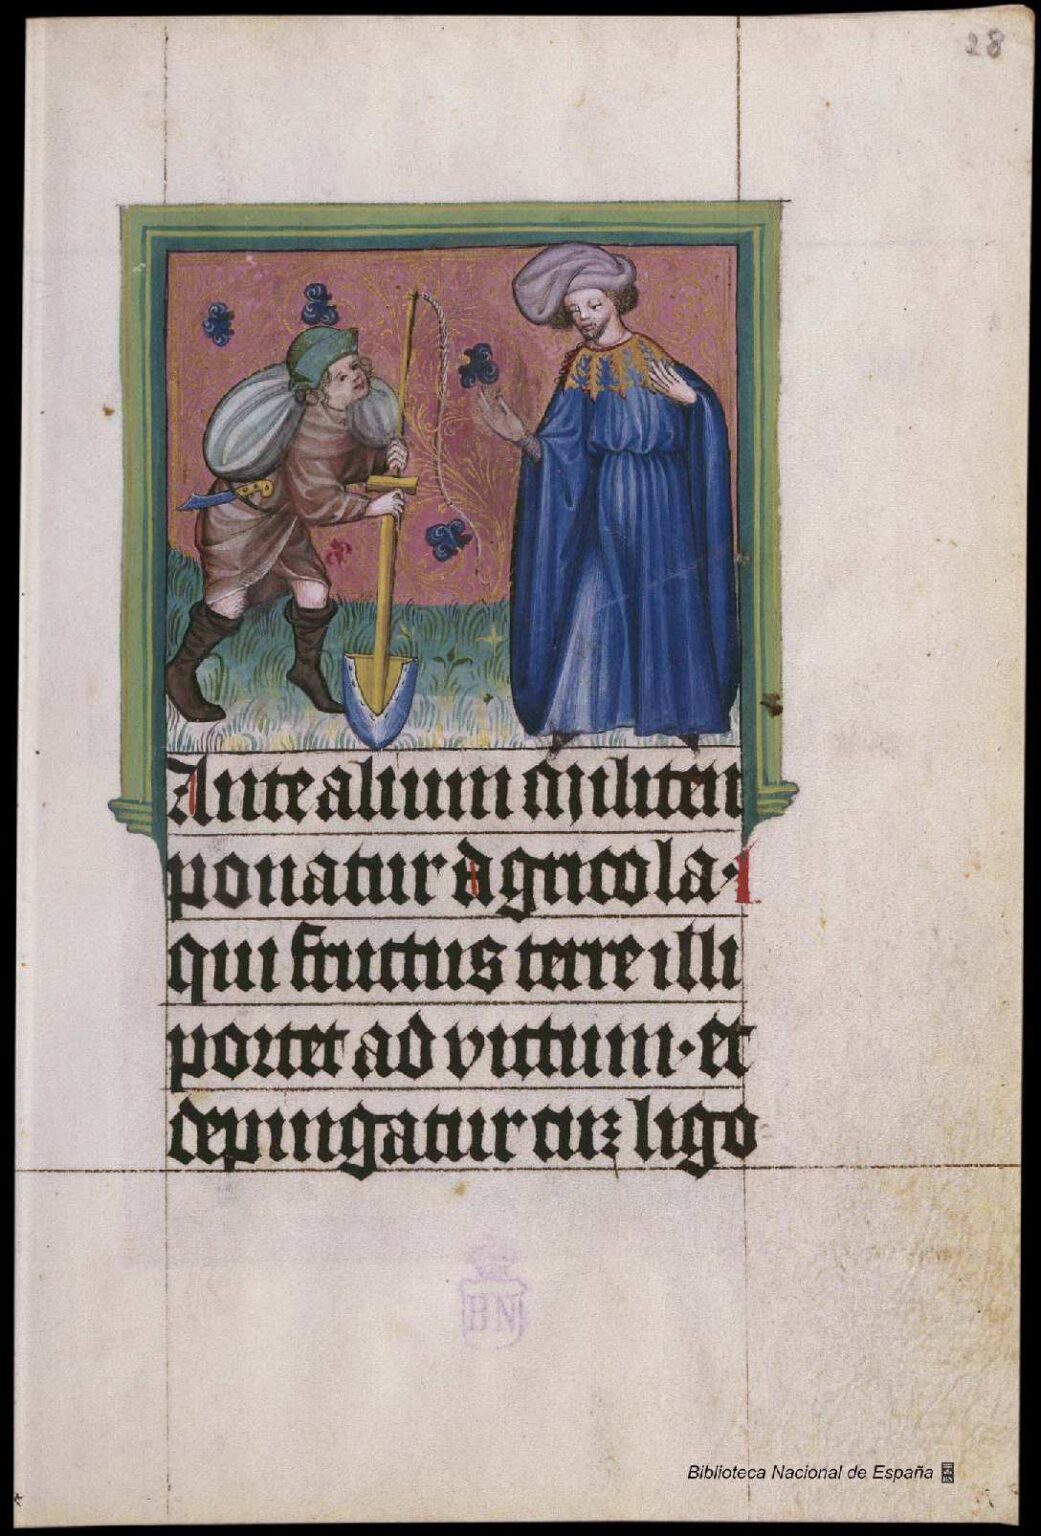 28
Ante alium militem
ponatur Agricola·
qui fructus terre illi
portet ad victum· et
depingatur cuz ligo
BN
Biblioteca Nacional de España